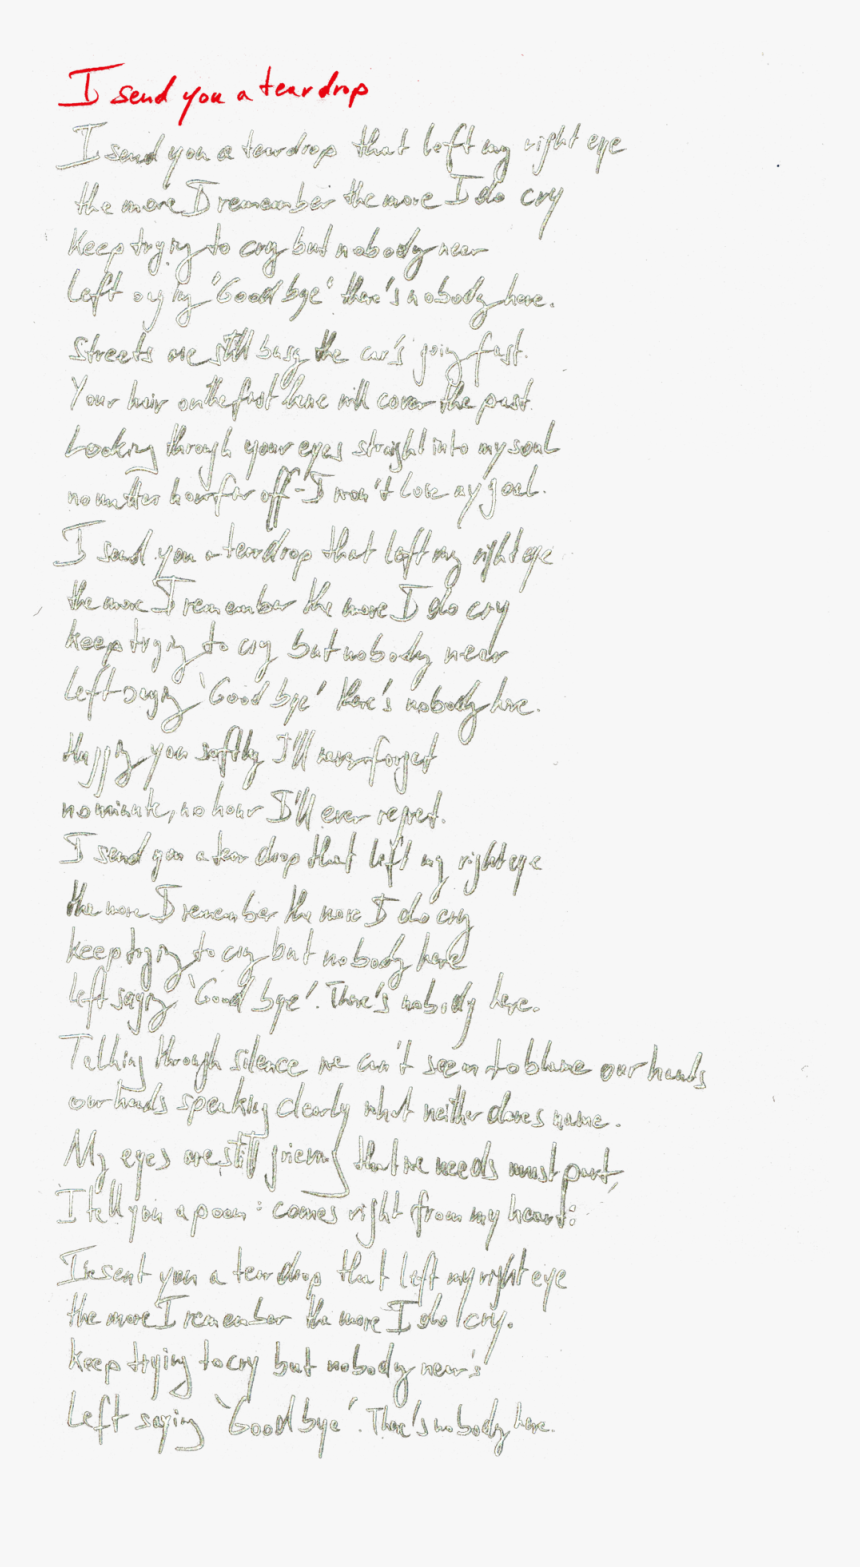 I send you a teardrop
I send you a teardrop that left my right eye
the more I remember the more I do cry
Keep trying to cry but nobody near
Left saying 'Good bye' there's nobody here.
Streets are still busy the car's going fast.
Your hair on the first lane will cover the past.
Looking through your eyes straight into my soul
no matter how far off - I won't lose my goal.
I send you a teardrop that left my right eye
the more I remember the more I do cry
keep trying to cry but nobody near
Left saying 'Good bye' there's nobody here.
Hugging you softly I'll never forget
no minute, no hour I'll ever regret.
I send you a tear drop that left my right eye
the more I remember the more I do cry
keep trying to cry but nobody here
Left saying 'Good bye'. There's nobody here.
Talking through silence we can't seem to blame our hands
our hands speaking clearly what neither dares name.
My eyes are still grieving that we needs must part,
I tell you a poem: comes right from my heart:
I sent you a tear drop that left my right eye
the more I remember the more I do cry.
keep trying to cry but nobody near's
Left saying 'Good bye'. There's nobody here.